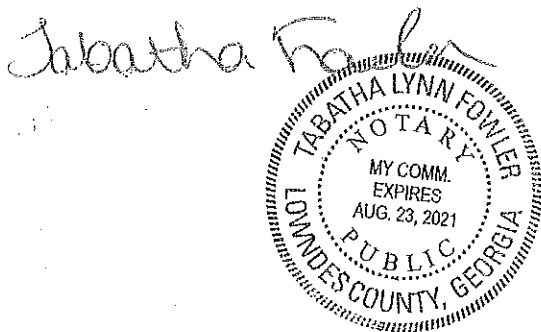 Tabatha Fowler
TABATHA LYNN FOWLER
NOTARY
MY COMM.
EXPIRES
AUG. 23, 2021
PUBLIC
LOWNDES COUNTY, GEORGIA